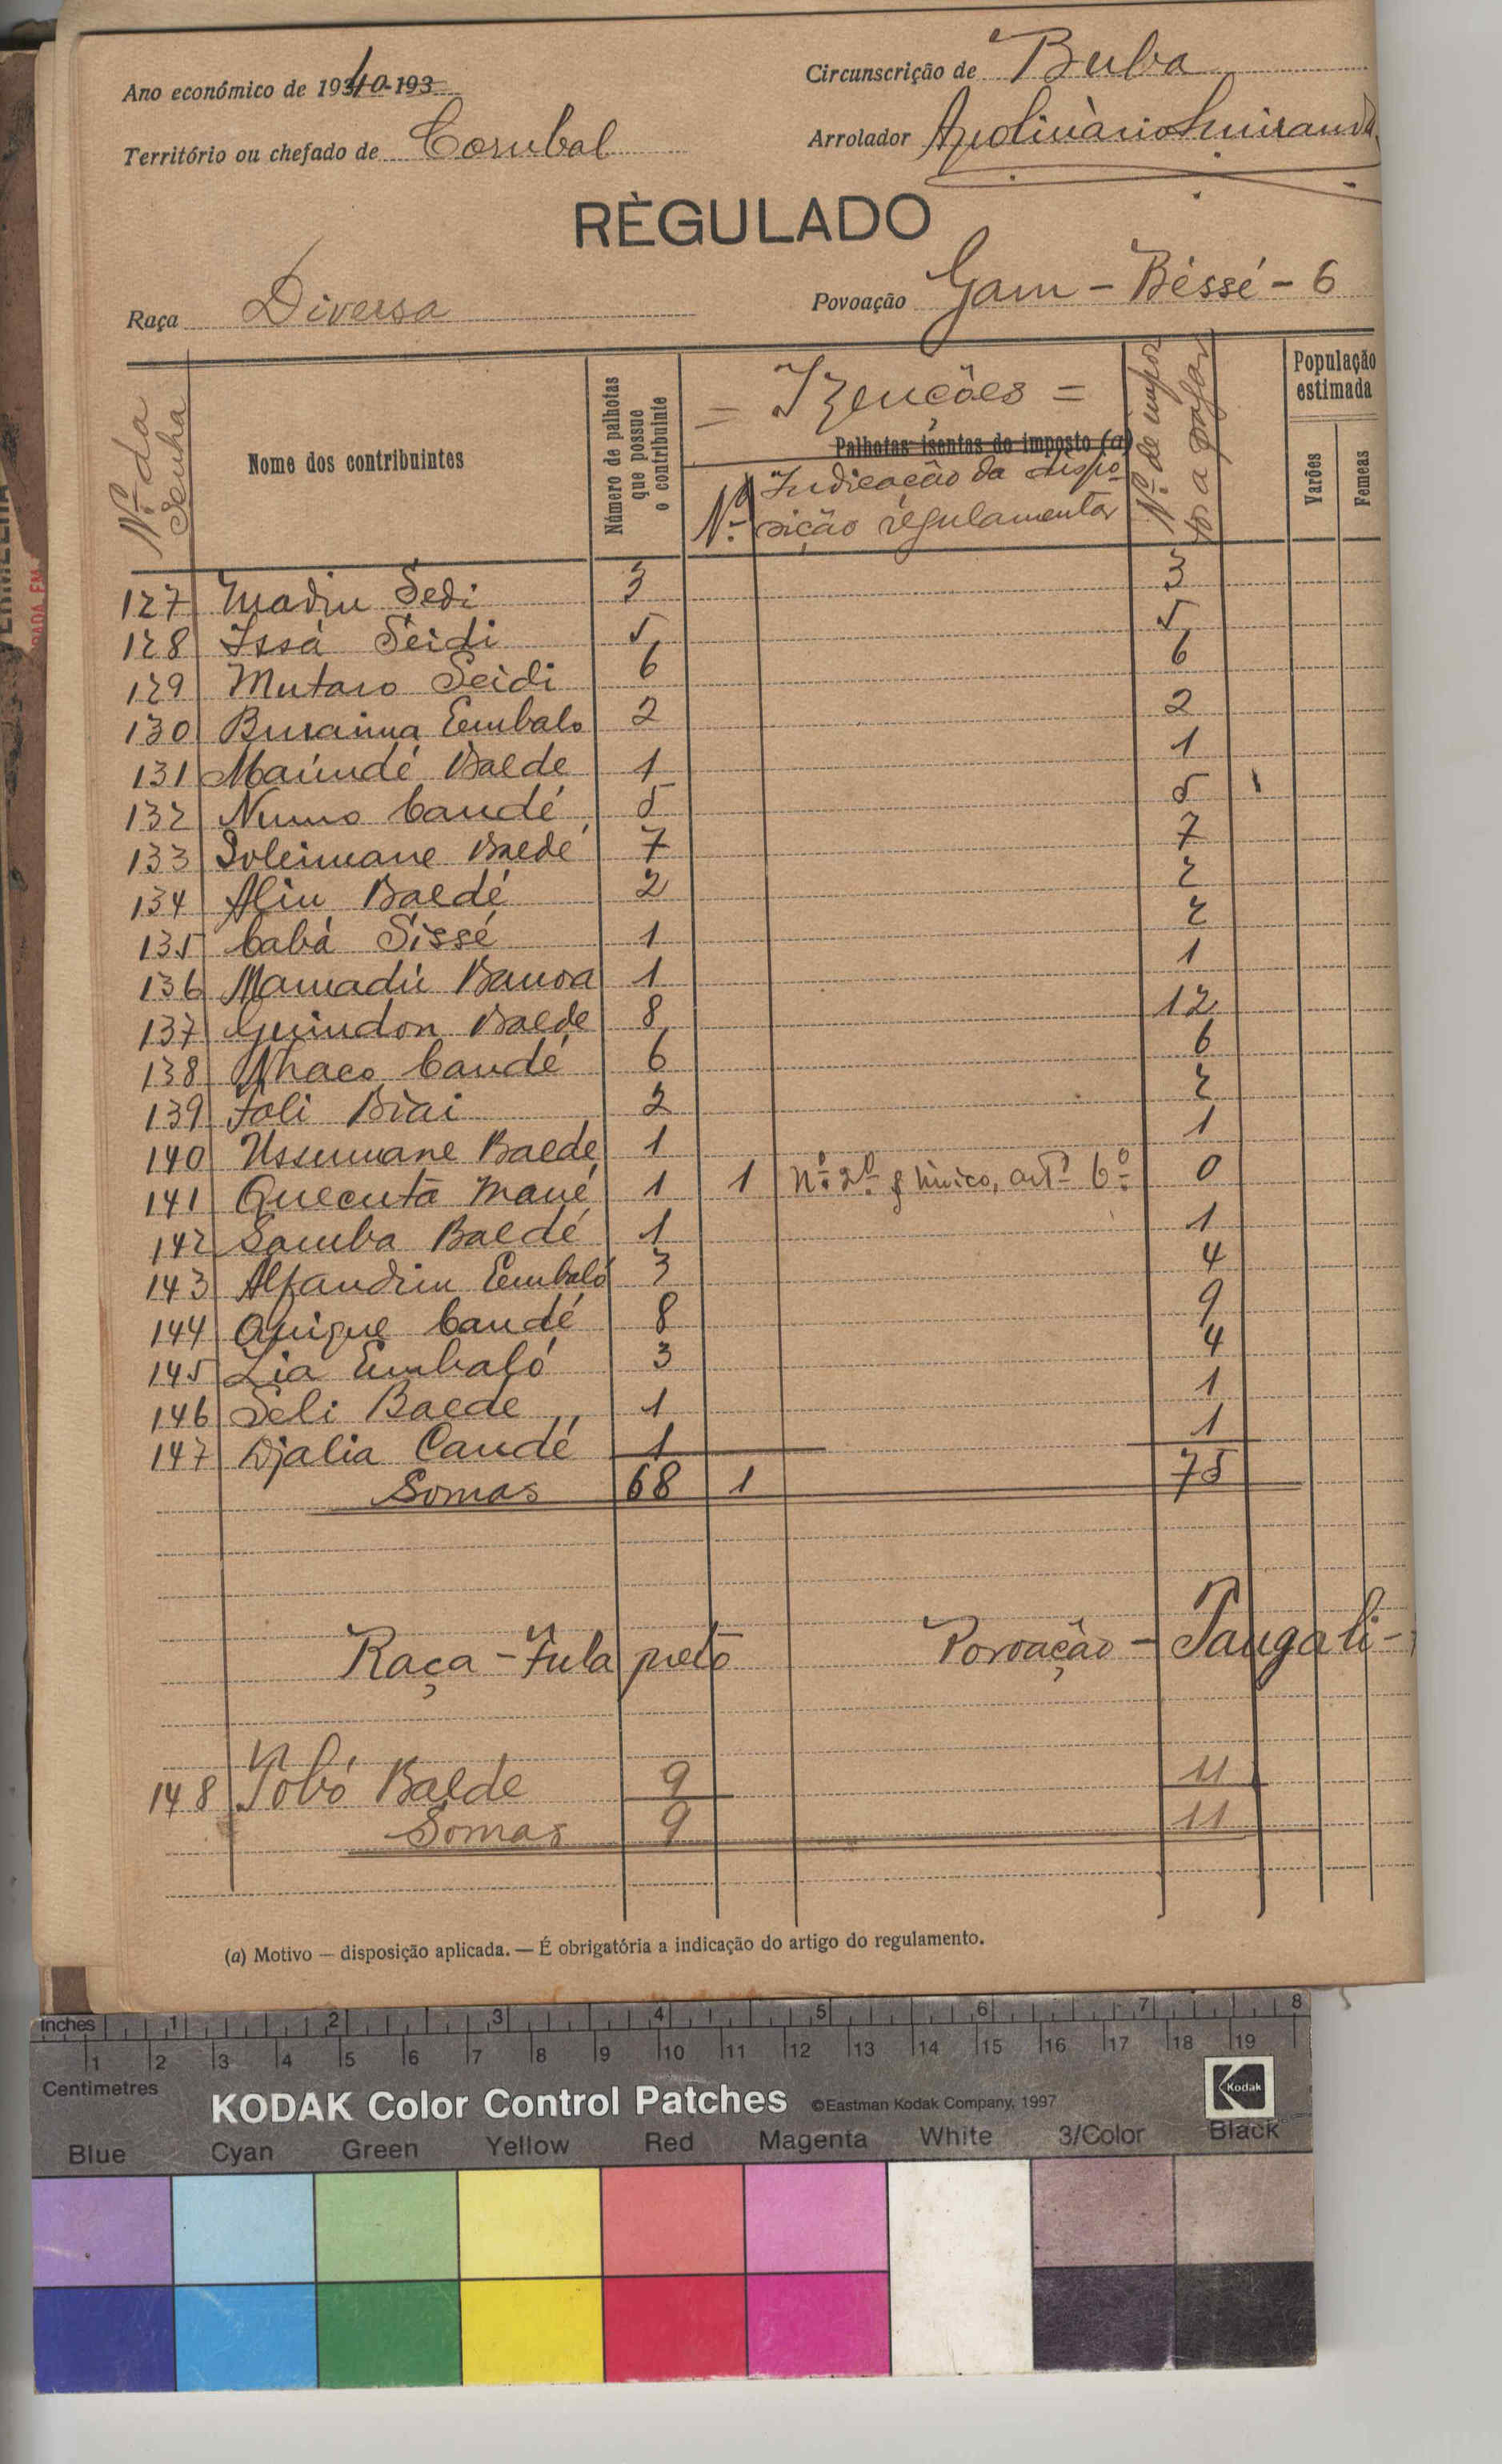 Ano económico de 1940-193
Circunscrição de Buba
Território ou chefado de Corubal
Arrolador Apolinàrio Lmiranda
RÈGULADO
Raça Diversa
Povoação Gam-Béssé-6
Nº da Senha
Nome dos contribuintes
Número de palhotas que possue o contribuinte
= Izenções =
Palhotas isentas do imposto (a)
Nº
Indicação da dispo-
sição regulamentar
Nº de impos
tos a pagar
População estimada
Varões
Femeas
127 Madiu Sedi 3 3
128 Issá Seidi 5 5
129 Mutaro Seidi 6 6
130 Buraima Embalo 2 2
131 Maúndé Balde 1 1
132 Numo Candé 5 5
133 Soleimane Baldé 7 7
134 Aliu Baldé 2 2
135 Cabá Sissé 1 2
136 Mamadú Banora 1 1
137 Guindon Balde 8 12
138 Nhaco Candé 6 6
139 Foli Biai 2 2
140 Ussumane Balde 1 1
141 Quecutá Mané 1 1 nº 2º § único, artº 6º 0
142 Samba Baldé 1 1
143 Alfandiu Embaló 3 4
144 Quique Candé 8 9
145 Lia Embaló 3 4
146 Seli Balde 1 1
147 Djalia Candé 1 1
Somas 68 1 75
Raça - Fula preto
Povoação - Tangali -
148 Tobó Balde 9 11
Somas 9 11
(a) Motivo — disposição aplicada. — É obrigatória a indicação do artigo do regulamento.
inches 1 2 3 4 5 6 7 8
1 2 3 4 5 6 7 8 9 10 11 12 13 14 15 16 17 18 19
Centimetres
KODAK Color Control Patches ©Eastman Kodak Company, 1997 Kodak
Blue Cyan Green Yellow Red Magenta White 3/Color Black